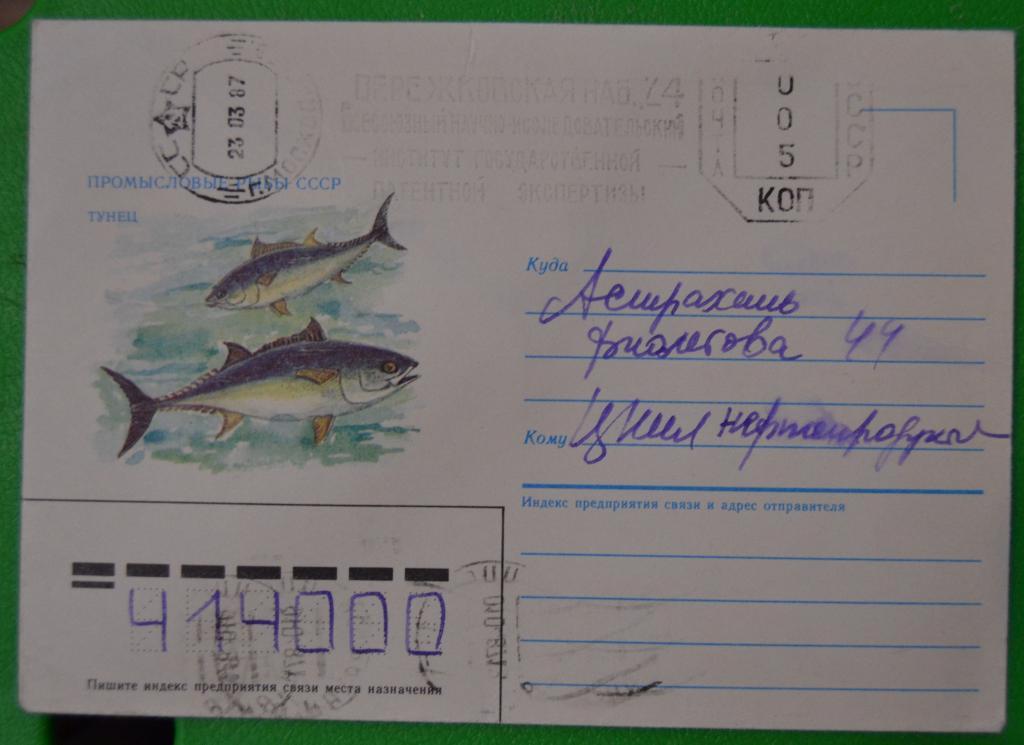 СССР
23 03 87
Г. МОСКВА
БЕРЕЖКОВСКАЯ НАБ., 24
ВСЕСОЮЗНЫЙ НАУЧНО-ИССЛЕДОВАТЕЛЬСКИЙ
— ИНСТИТУТ ГОСУДАРСТВЕННОЙ —
ПАТЕНТНОЙ ЭКСПЕРТИЗЫ
ПОЧТА
005
КОП
СССР
ПРОМЫСЛОВЫЕ РЫБЫ СССР
ТУНЕЦ
Куда
Астрахань
Фиолетова 44
Кому ЦНИЛ нефтепродукты
Индекс предприятия связи и адрес отправителя
414000
Пишите индекс предприятия связи места назначения